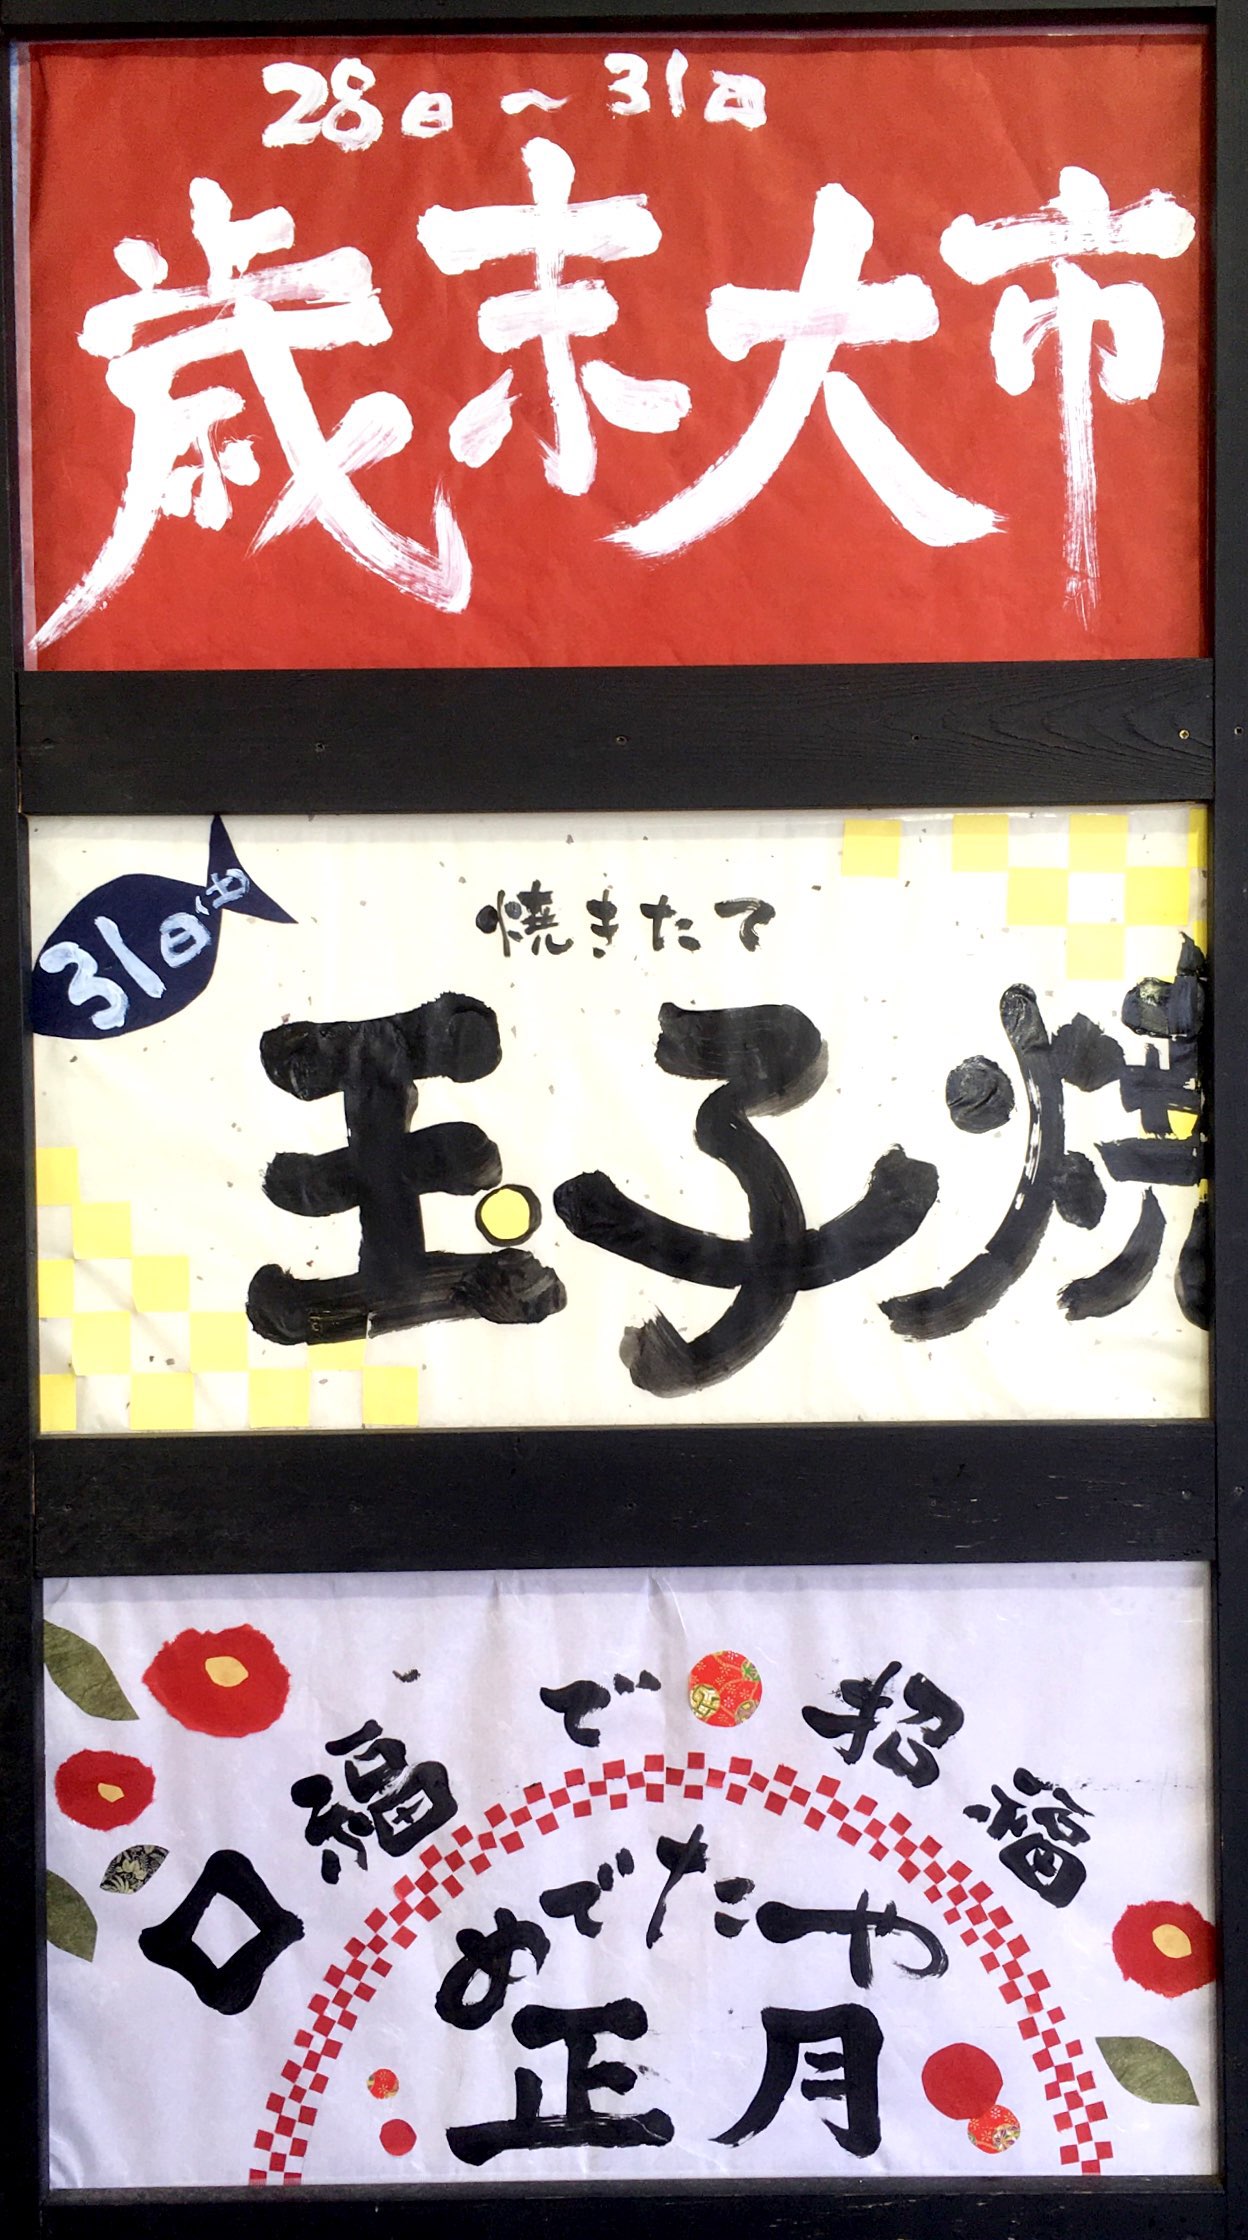 28日〜31日
歳末大市
31日(土)
焼きたて
玉子焼
口福で招福
めでたや
正月